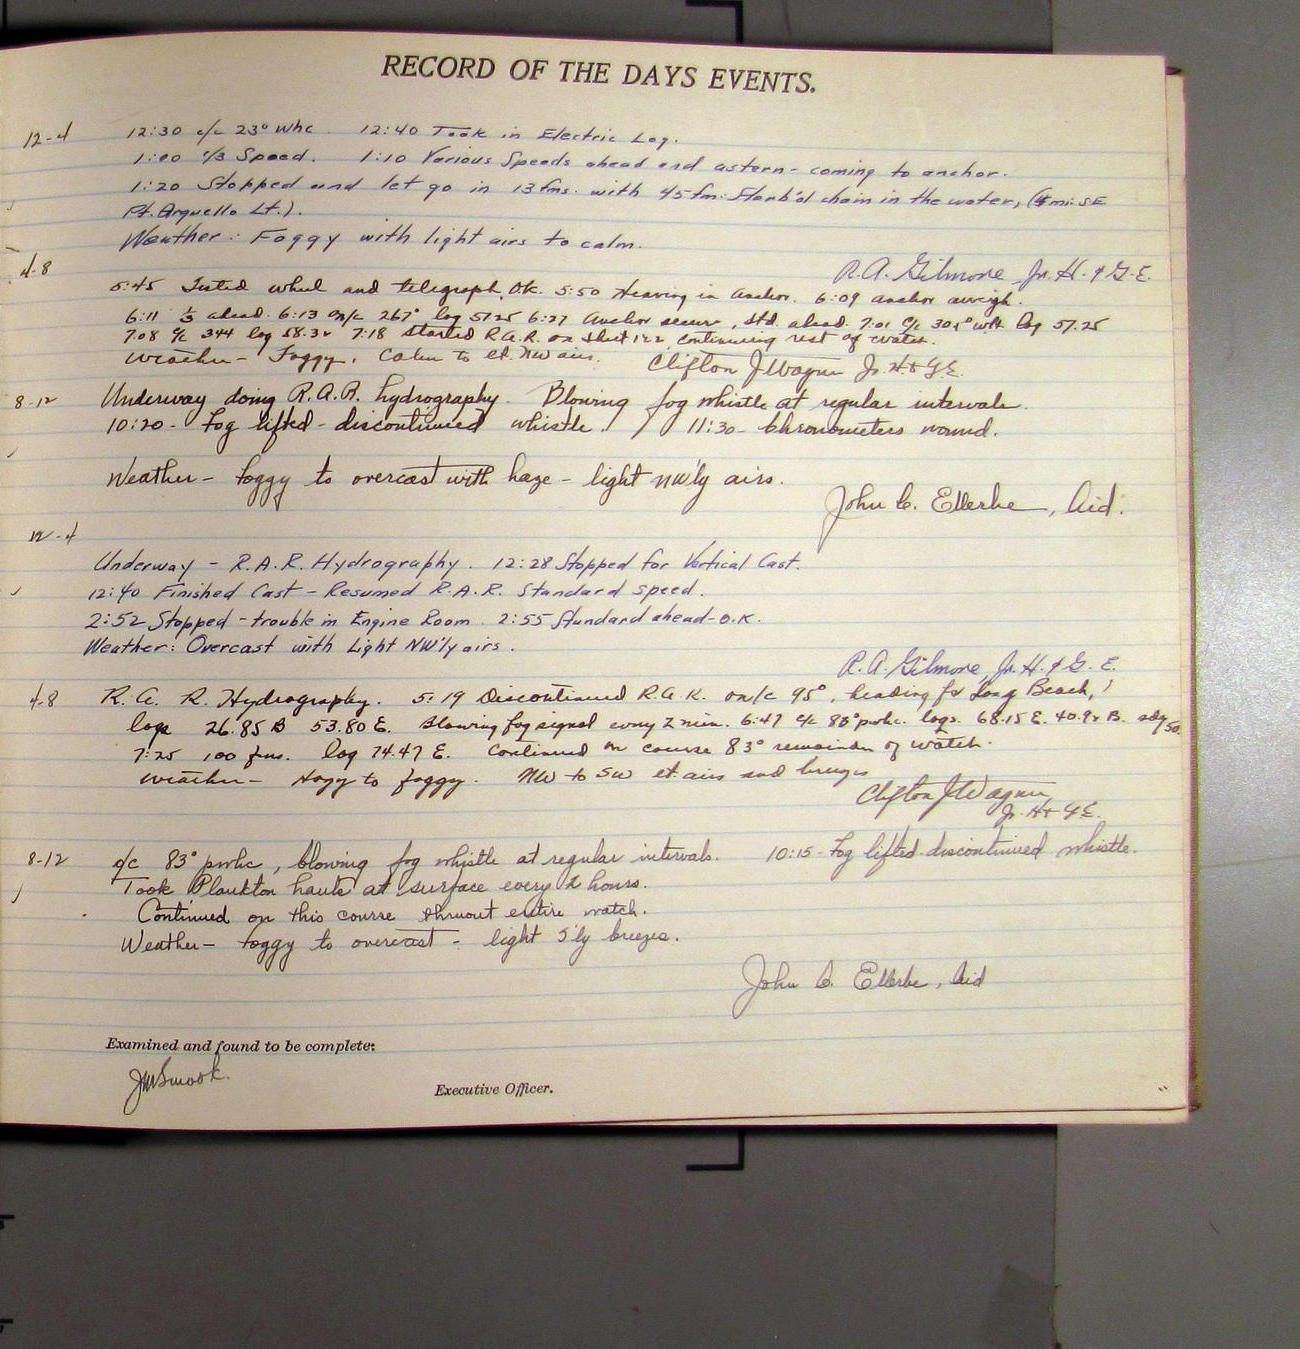 RECORD OF THE DAYS EVENTS.
12-4 12:30 c/c 23° whc. 12:40 Took in Electric Log.
1:00 1/3 Speed. 1:10 Various Speeds ahead and astern - coming to anchor.
1:20 Stopped and let go in 13 fms. with 45 fm. Starb'd chain in the water, (4 mi. SE
Pt. Arguello Lt.).
Weather: Foggy with light airs to calm.
R.A. Gilmore Jr. H. & G. E.
4-8
5:45 Tested whul and telegraph, O.K. 5:50 Heaving in anchor. 6:09 anchor aweigh.
6:11 1/3 ahead. 6:13 on/c 267° log 57.25 6:27 Anchor secure, Std. ahead. 7:01 c/c log 57.25
7:08 c/c 344 log 58.32 7:18 started R.A.R. on sheet 122, continuing rest of watch.
Weather - Foggy, Calm to lt. NW airs. Clifton J Wagner Jr. H & G E.
8-12 Underway doing R.A.R. hydrography. Blowing fog whistle at regular intervals.
10:20 - Fog lifted - discontinued whistle. 11:30 - Chronometers wound.
Weather - foggy to overcast with haze - light NW'ly airs.
John C. Ellerbe, Aid.
12-4
Underway - R.A.R. Hydrography. 12:28 Stopped for Vertical Cast.
12:40 Finished Cast - Resumed R.A.R. Standard speed.
2:52 Stopped - trouble in Engine Room. 2:55 Standard ahead - O.K.
Weather: Overcast with Light NW'ly airs.
R.A. Gilmore, Jr. H. & G. E.
4-8 R. A. R. Hydrography. 5:19 Discontinued R.A.R. on/c 95°, heading for Long Beach,
logs 26.85 B 53.80 E. Blowing fog signal every 2 min. 6:47 c/c pwhc. logs. 68.15 E. 40.92 B.
7:25 100 fms. log 74.47 E. Continued on course 83° remainder of watch.
Weather - Hazy to foggy. NW to SW lt. airs and breezes
Clifton J Wagner
Jr. H & G E.
8-12 o/c 83° pwhc, blowing fog whistle at regular intervals. 10:15 - Fog lifted - discontinued whistle.
Took Plankton hauls at surface every 2 hours.
Continued on this course thruout entire watch.
Weather - foggy to overcast - light S'ly breezes.
John C. Ellerbe, Aid
Examined and found to be complete:
JM Smook.
Executive Officer.